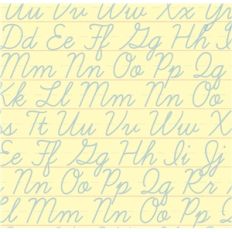 Uu Vv Ww Xx Yy
Dd Ee Ff Gg Hh Ii
Mm Nn Oo Pp Qq
Kk Ll Mm Nn Oo
s Tt Uu Vv Ww Xx
Ee Ff Gg Hh Ii Jj
n Nn Oo Pp Qq Rr
Ll Mm Nn Oo Pp